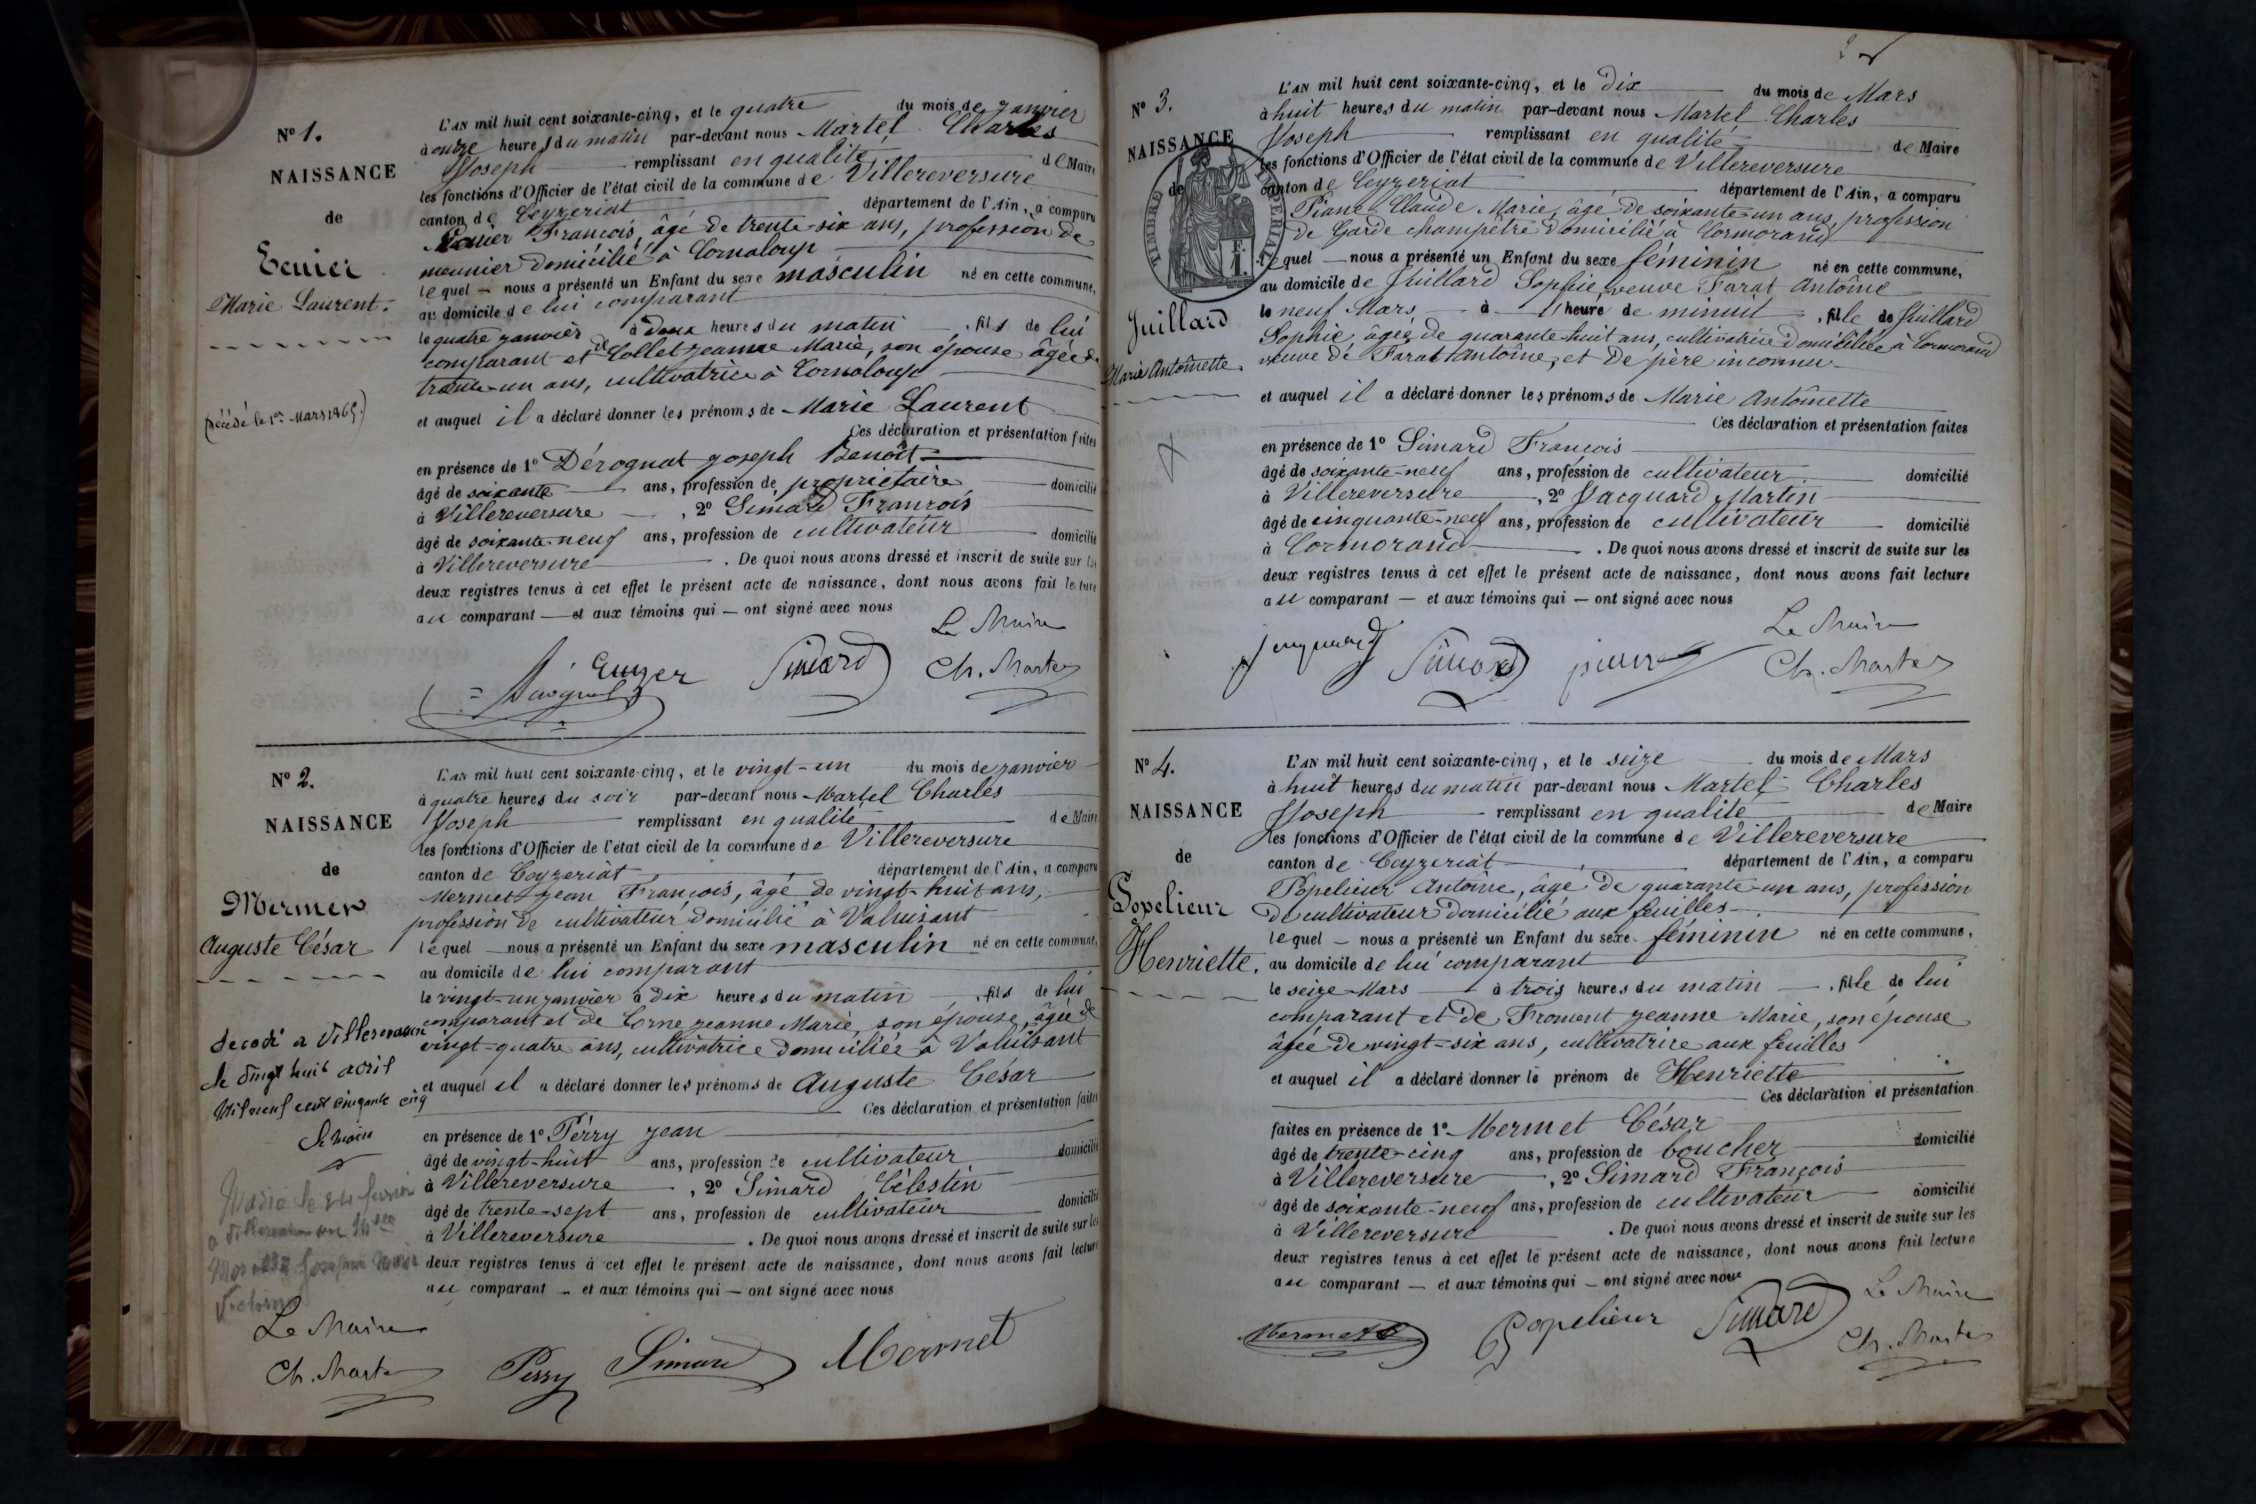 N° 1.
NAISSANCE
de
Ecuier
Marie Laurent.
(Décédé le 1er Mars 1865.)
L'AN mil huit cent soixante-cinq, et le quatre du mois de janvier
à onze heures du matin par-devant nous Martel Charles
Joseph remplissant en qualité de Maire
les fonctions d'Officier de l'état civil de la commune de Villereversure
canton de Ceyzeriat département de l'Ain, a comparu
François, âgé de trente-six ans, profession de
meunier domicilié à Cornaloup
lequel nous a présenté un Enfant du sexe masculin né en cette commune,
au domicile de lui comparant
le quatre janvier à deux heures du matin, fils de lui
comparant et de Collet jeanne Marie, son épouse âgée de
trente-un ans, cultivatrice à Cornaloup
et auquel il a déclaré donner les prénoms de Marie Laurent
Ces déclaration et présentation faites
en présence de 1° Dérognat joseph Benoît
âgé de soixante ans, profession de propriétaire domicilié
à Villereversure, 2° Simard François
âgé de soixante-neuf ans, profession de cultivateur domicilié
à Villereversure. De quoi nous avons dressé et inscrit de suite sur les
deux registres tenus à cet effet le présent acte de naissance, dont nous avons fait lecture
au comparant — et aux témoins qui — ont signé avec nous
Le Maire
Simard Ch. Martel
N° 2.
NAISSANCE
de
Mermet
Auguste César
decedé a Villereversure
le vingt huit avril
Mil neuf cent cinquante cinq
Le Maire
Marié le 24 fevrier
L'AN mil huit cent soixante-cinq, et le vingt-un du mois de janvier
à quatre heures du soir par-devant nous Martel Charles
Joseph remplissant en qualité de Maire
les fonctions d'Officier de l'état civil de la commune de Villereversure
canton de Ceyzeriat département de l'Ain, a comparu
Mermet jean François, âgé de vingt-huit ans,
profession de cultivateur domicilié à Valuisant
lequel — nous a présenté un Enfant du sexe masculin né en cette commune,
au domicile de lui comparant
le vingt-un janvier à dix heures du matin, fils de lui
comparant et de Corne jeanne Marie, son épouse, âgée de
vingt-quatre ans, cultivatrice domiciliée à Valuisant
et auquel il a déclaré donner les prénoms de Auguste César
Ces déclaration et présentation faites
en présence de 1° Perry jean
âgé de vingt-huit ans, profession de cultivateur domicilié
à Villereversure, 2° Simard Célestin
âgé de trente-sept ans, profession de cultivateur domicilié
à Villereversure. De quoi nous avons dressé et inscrit de suite sur les
deux registres tenus à cet effet le présent acte de naissance, dont nous avons fait lecture
au comparant — et aux témoins qui — ont signé avec nous
Le Maire
Ch. Martel Perry Simard Mermet
2
N° 3.
NAISSANCE
de
Juillard
Marie Antoinette.
TIMBRE IMPERIAL
L'AN mil huit cent soixante-cinq, et le dix du mois de Mars
à huit heures du matin par-devant nous Martel Charles
Joseph remplissant en qualité de Maire
les fonctions d'Officier de l'état civil de la commune de Villereversure
canton de Ceyzeriat département de l'Ain, a comparu
Piane Claude Marie, âgé de soixante-un ans, profession
de Garde champêtre domicilié à Cormorand
lequel — nous a présenté un Enfant du sexe féminin né en cette commune,
au domicile de Juillard Sophie, veuve Farat Antoine
le neuf Mars à l'heure de minuit, fille de Juillard
Sophie, âgée de quarante-huit ans, cultivatrice domiciliée à Cormorand
veuve de Farat Antoine, et de père inconnu
et auquel il a déclaré donner les prénoms de Marie Antoinette
Ces déclaration et présentation faites
en présence de 1° Simard François
âgé de soixante-neuf ans, profession de cultivateur domicilié
à Villereversure, 2° Jacquard Martin
âgé de cinquante-neuf ans, profession de cultivateur domicilié
à Cormorand. De quoi nous avons dressé et inscrit de suite sur les
deux registres tenus à cet effet le présent acte de naissance, dont nous avons fait lecture
au comparant — et aux témoins qui — ont signé avec nous
Le Maire
Simard Ch. Martel
N° 4.
NAISSANCE
de
Popelieur
Henriette.
L'AN mil huit cent soixante-cinq, et le seize du mois de Mars
à huit heures du matin par-devant nous Martel Charles
Joseph remplissant en qualité de Maire
les fonctions d'Officier de l'état civil de la commune de Villereversure
canton de Ceyzeriat département de l'Ain, a comparu
Popelieur Antoine, âgé de quarante-un ans, profession
de cultivateur domicilié aux feuilles
lequel — nous a présenté un Enfant du sexe féminin né en cette commune,
au domicile de lui comparant
le seize Mars à trois heures du matin, fille de lui
comparant et de Froment jeanne Marie, son épouse
âgée de vingt-six ans, cultivatrice aux feuilles
et auquel il a déclaré donner le prénom de Henriette
Ces déclaration et présentation
faites en présence de 1° Mermet César
âgé de trente-cinq ans, profession de boucher domicilié
à Villereversure, 2° Simard François
âgé de soixante-neuf ans, profession de cultivateur domicilié
à Villereversure. De quoi nous avons dressé et inscrit de suite sur les
deux registres tenus à cet effet le présent acte de naissance, dont nous avons fait lecture
au comparant — et aux témoins qui — ont signé avec nous
Le Maire
Mermet Popelieur Simard Ch. Martel